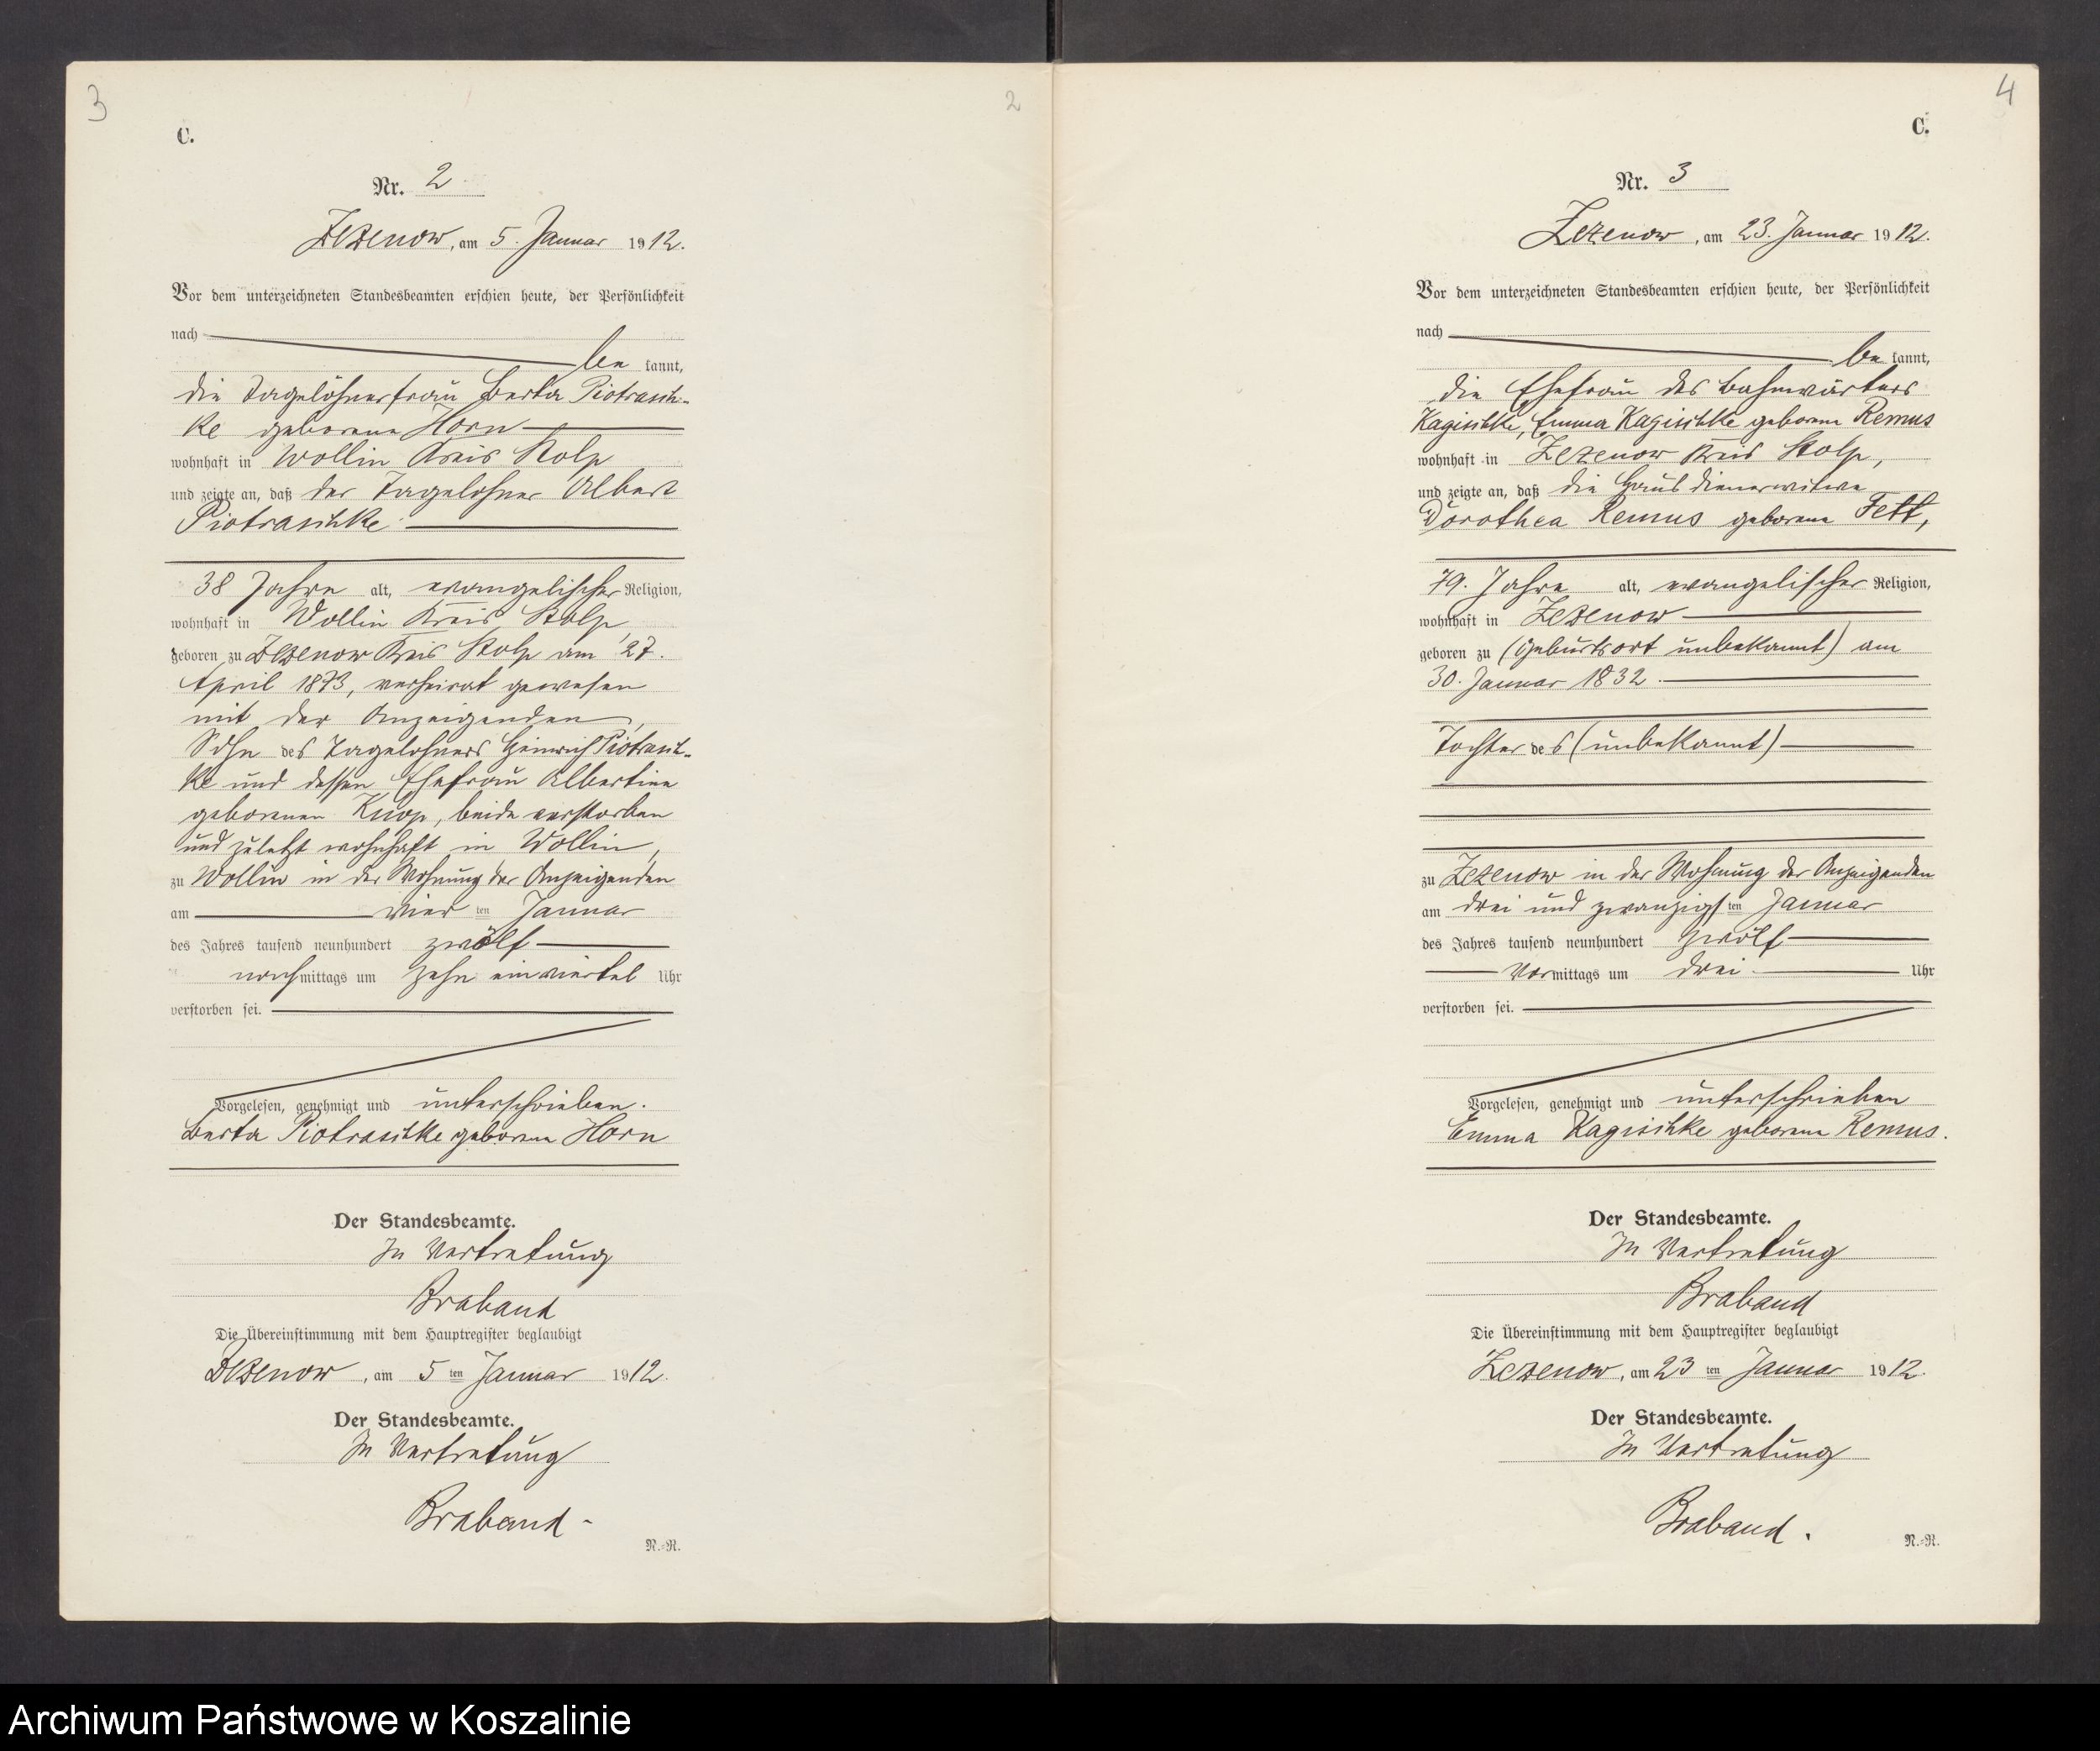 3
C.
Nr. 2
Zezenow, am 5. Januar 1912.
Vor dem unterzeichneten Standesbeamten erschien heute, der Persönlichkeit
nach
be kannt,
die Tagelöhnerfrau Berta Piotrasch-
ke geborene Horn
wohnhaft in Wollin Kreis Stolp
und zeigte an, daß der Tagelöhner Albert
Piotraschke
38 Jahre alt, evangelischer Religion,
wohnhaft in Wollin Kreis Stolp
geboren zu Zezenow Kreis Stolp am 27.
April 1873, verheirat gewesen
mit der Anzeigenden,
Sohn des Tagelöhners Heinrich Piotrasch-
ke und dessen Ehefrau Albertine
geborenen Knop, beide verstorben
und zuletzt wohnhaft in Wollin,
zu Wollin in der Wohnung der Anzeigenden
am vier ten Januar
des Jahres tausend neunhundert zwölf
nachmittags um zehn einviertel Uhr
verstorben sei.
Vorgelesen, genehmigt und unterschrieben.
Berta Piotraschke geborene Horn
Der Standesbeamte.
In Vertretung
Braband
Die Übereinstimmung mit dem Hauptregister beglaubigt
Zezenow, am 5 ten Januar 1912.
Der Standesbeamte.
In Vertretung
Braband.
N.-R.
2
4
C.
Nr. 3
Zezenow, am 23. Januar 1912.
Vor dem unterzeichneten Standesbeamten erschien heute, der Persönlichkeit
nach
be kannt,
die Ehefrau des Bahnwärters
Kagischke, Emma Kagischke geborene Remus
wohnhaft in Zezenow Kreis Stolp,
und zeigte an, daß die Hausdienerwitwe
Dorothea Remus geborene Fett,
79. Jahre alt, evangelischer Religion,
wohnhaft in Zezenow
geboren zu (Geburtsort unbekannt) am
30. Januar 1832.
Tochter des (unbekannt)
zu Zezenow in der Wohnung der Anzeigenden
am drei und zwanzigsten Januar
des Jahres tausend neunhundert zwölf
Vormittags um drei Uhr
verstorben sei.
Vorgelesen, genehmigt und unterschrieben
Emma Kagischke geborene Remus.
Der Standesbeamte.
In Vertretung
Braband
Die Übereinstimmung mit dem Hauptregister beglaubigt
Zezenow, am 23 ten Januar 1912.
Der Standesbeamte.
In Vertretung
Braband.
N.-R.
Archiwum Państwowe w Koszalinie